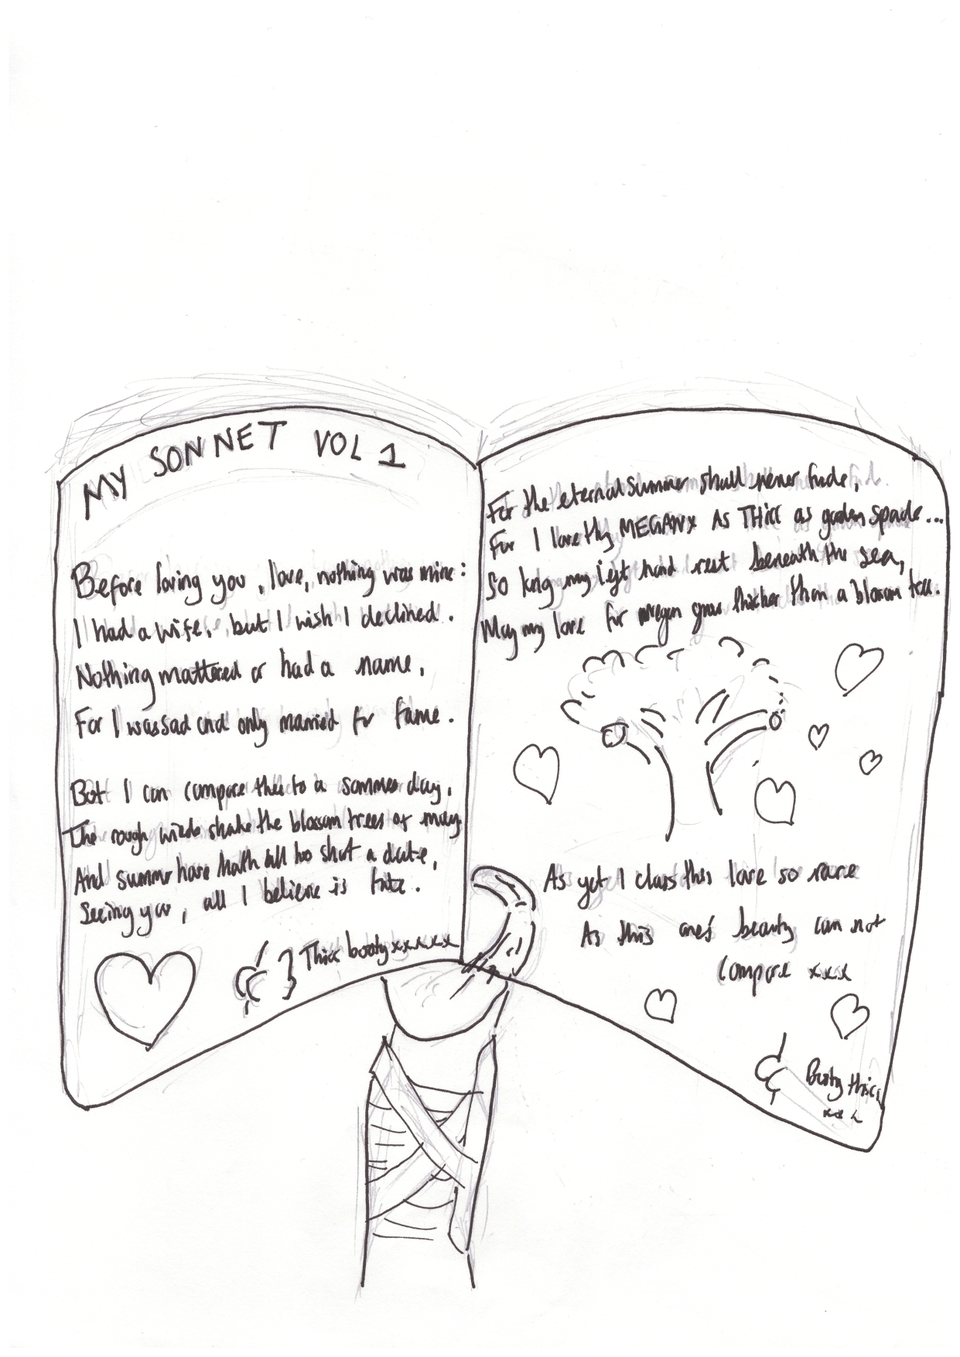 MY SONNET VOL 1
Before loving you, love, nothing was mine:
I had a wife, but I wish I declined.
Nothing mattered or had a name,
For I was sad and only married for fame.
But I can compare this to a sommer day,
The rough winds shake the blossom trees of may
And summer have hath all ho shot a date,
Seeing you, all I believe is fate.
Thicc booty xxxxx
For the eternal summer shall never fade,
For I love thy MEGANX AS THICC as garden spade...
So long my left hand rest beneath the sea,
May my love for megan grow thicker than a blossom tree.
As yet I class this love so rare
As this one's beauty can not
compare xxx
Booty thicc
xxx